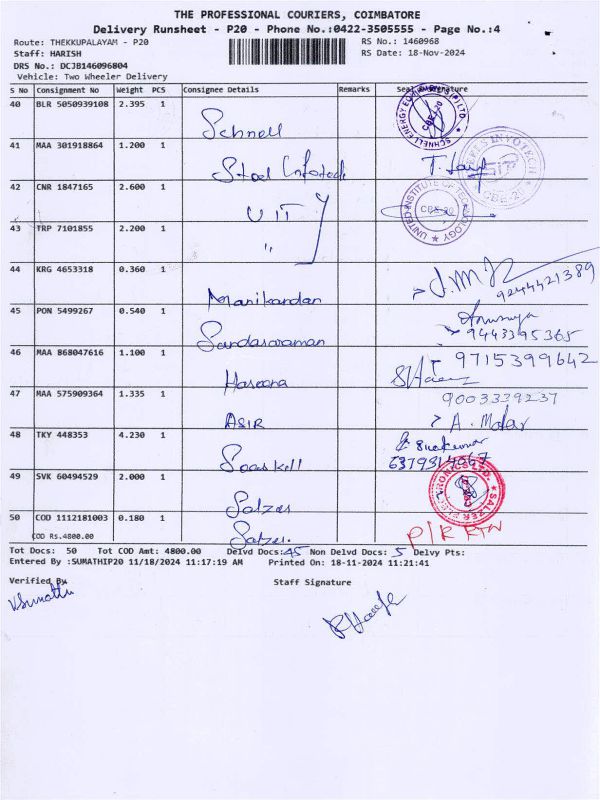 THE PROFESSIONAL COURIERS, COIMBATORE
Delivery Runsheet - P20 - Phone No.:0422-3505555 - Page No.:4
Route: THEKKUPALAYAM - P20
RS No.: 1460968
Staff: HARISH
RS Date: 18-Nov-2024
DRS No.: DCJB146096804
Vehicle: Two Wheeler Delivery
S No Consignment No Weight PCS Consignee Details Remarks Seal
40 BLR 5050939108 2.395 1 Schnell
SCHNELL ENERGY EQUIPMENTS (P) LTD. CBE-20
41 MAA 301918864 1.200 1 Steel Infotech
CBE-20
42 CNR 1847165 2.600 1 UIT
UNITED INSTITUTE OF TECHNOLOGY CBE-20
43 TRP 7101855 2.200 1 "
44 KRG 4653318 0.360 1 Manikandan
9244421389
45 PON 5499267 0.540 1
9443395365
46 MAA 868047616 1.100 1 Haseena
9715399642
47 MAA 575909364 1.335 1 ASIR
9003339237
48 TKY 448353 4.230 1
6379314067
49 SVK 60494529 2.000 1 Salzer
SALZER ELECTRONICS LTD.
50 COD 1112181003 0.180 1 Salzer
COD Rs.4800.00
Tot Docs: 50 Tot COD Amt: 4800.00 Delvd Docs: 45 Non Delvd Docs: 5 Delvy Pts:
Entered By :SUMATHIP20 11/18/2024 11:17:19 AM Printed On: 18-11-2024 11:21:41
Verified By
Staff Signature
V.Sumathi